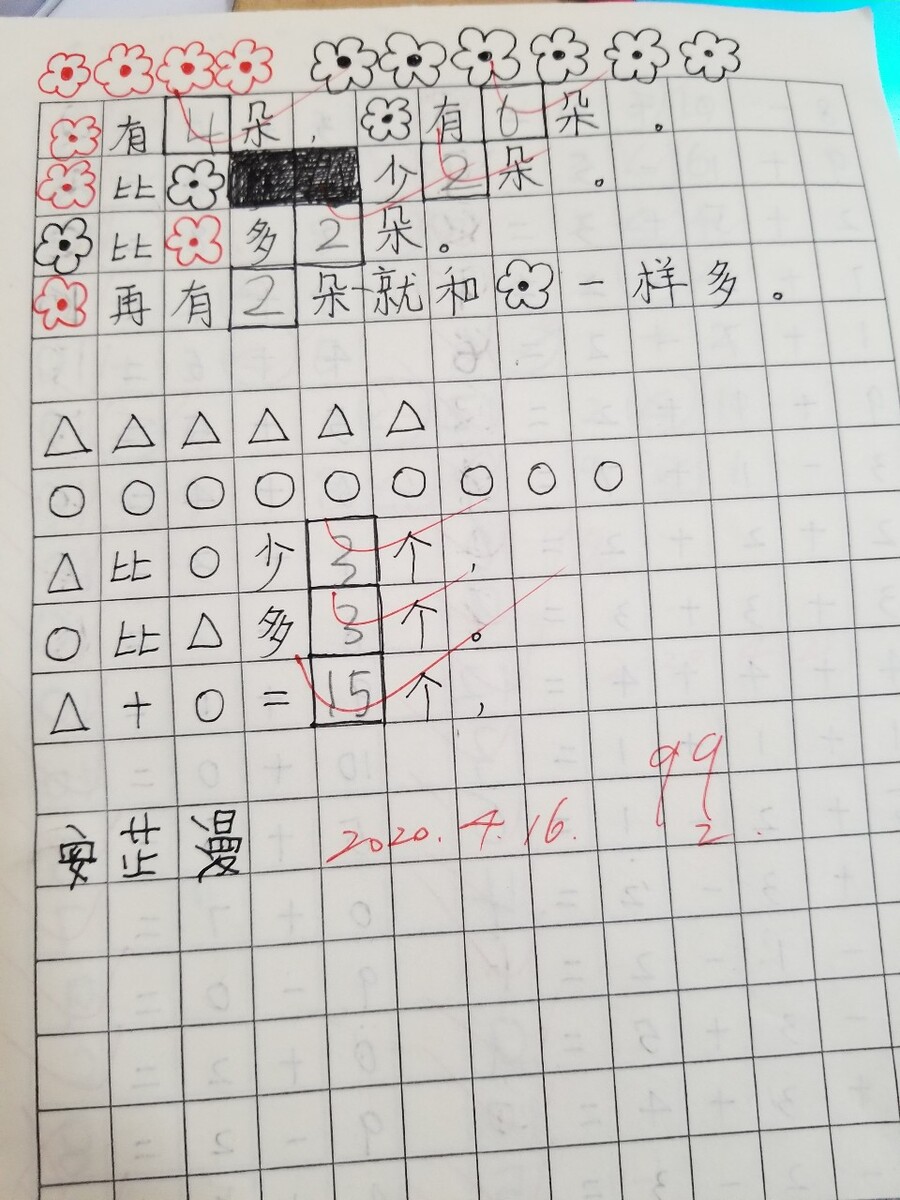 有4朵，有6朵。
比少2朵。
比多2朵。
再有2朵就和一样多。
△△△△△△
○○○○○○○○○
△比○少3个，
○比△多3个。
△+○=15个，
99
2020.4.16.
2.